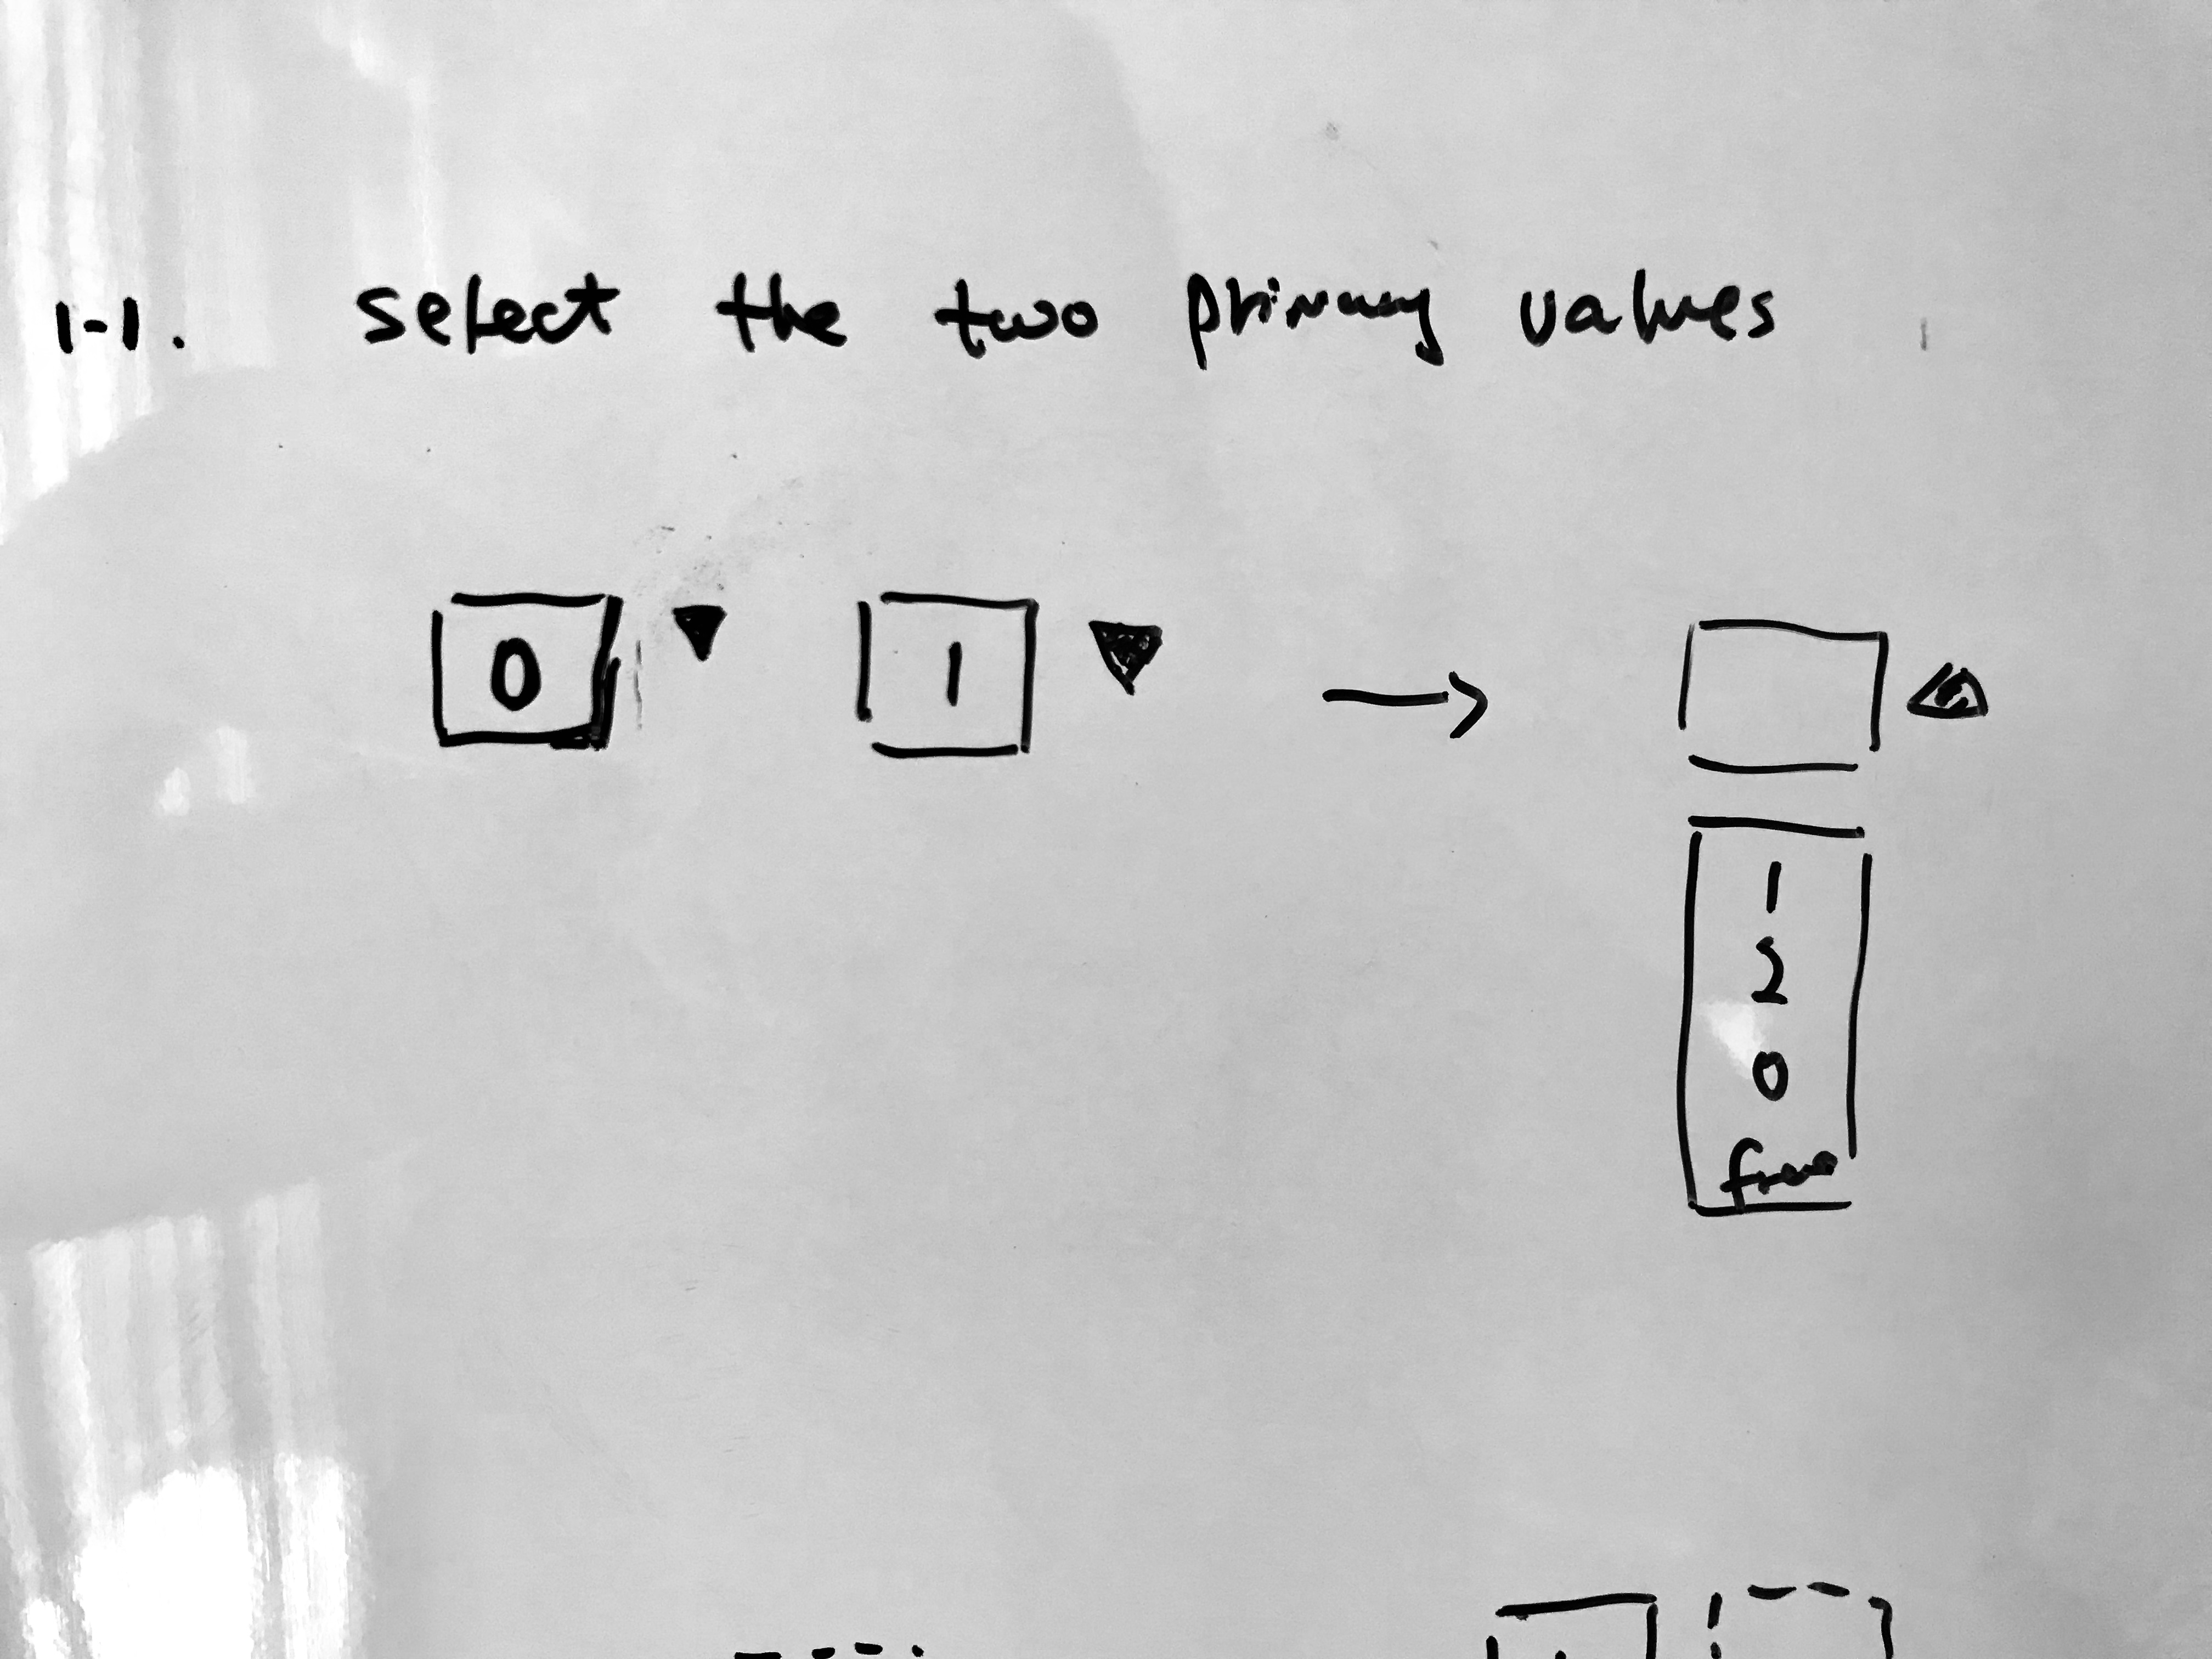 1-1. select the two primary values
0 1 →
1
2
0
free